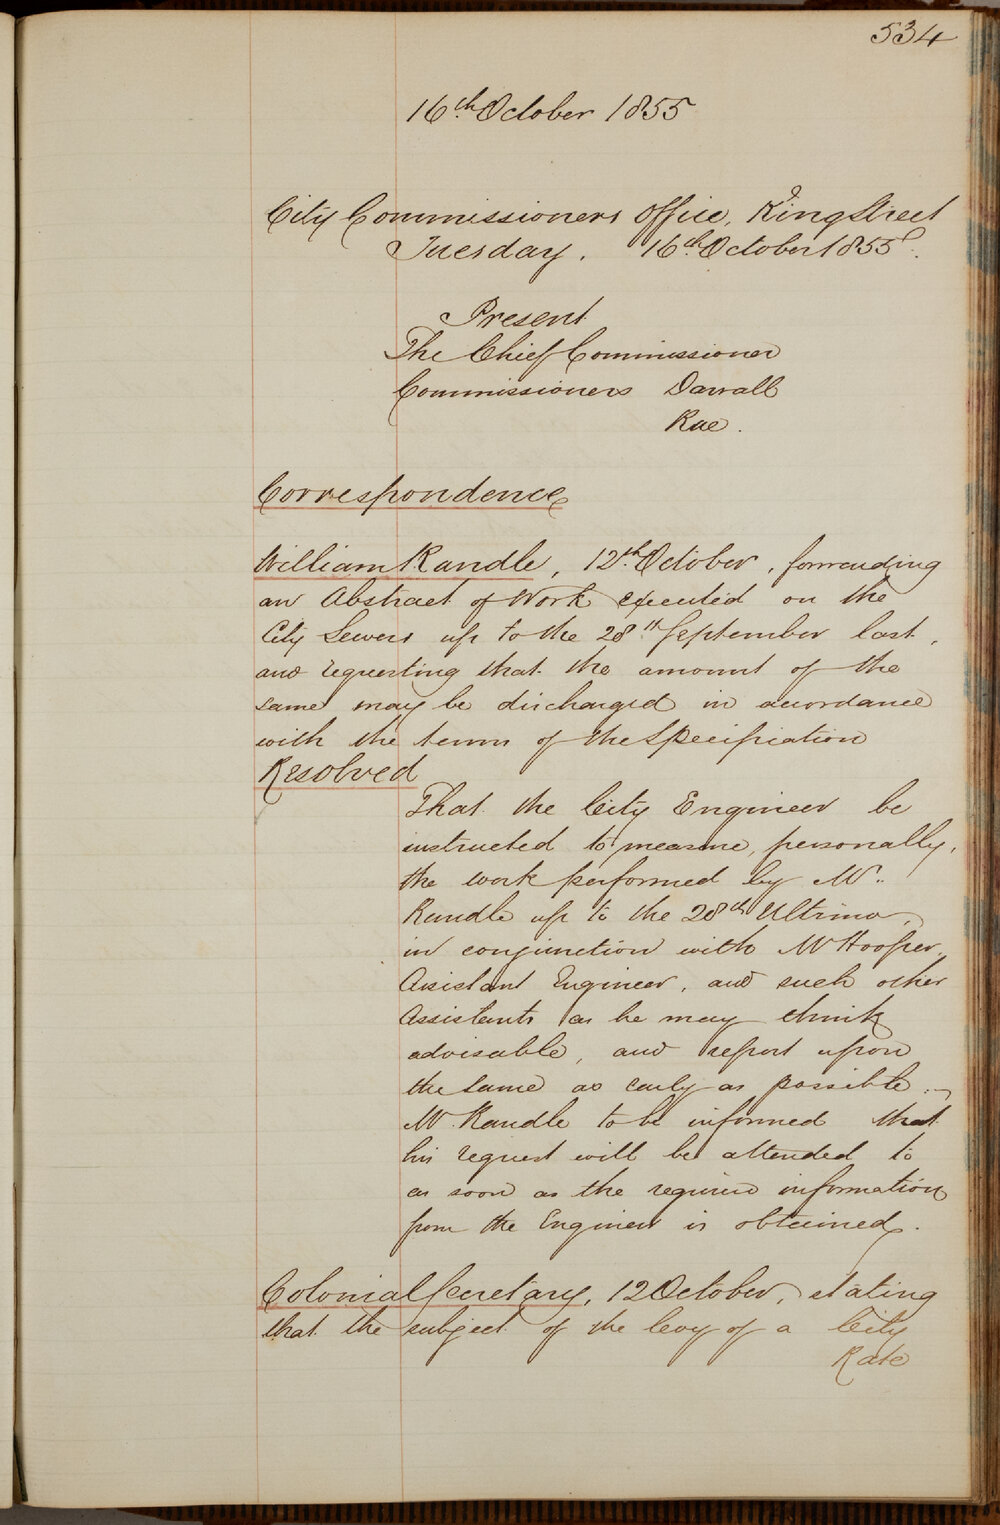 534
16th October 1855
City Commissioners Office, King Street
Tuesday, 16th October 1855.
Present
The Chief Commissioner
Commissioners Darvall
Rae.
Correspondence
William Randle, 12th October, forwarding
an Abstract of Work executed on the
City Sewers up to the 28th September last,
and requesting that the amount of the
same may be discharged in accordance
with the terms of the Specification
Resolved
That the City Engineer be
instructed to measure, personally,
the work performed by Mr.
Randle up to the 28th Ultimo,
in conjunction with Mr Hooper,
Assistant Engineer, and such other
Assistants as he may think
advisable, and report upon
the same as early as possible.
Mr. Randle to be informed that
his request will be attended to
as soon as the required information
from the Engineer is obtained.
Colonial Secretary, 12 October, stating
that the subject of the levy of a City
Rate